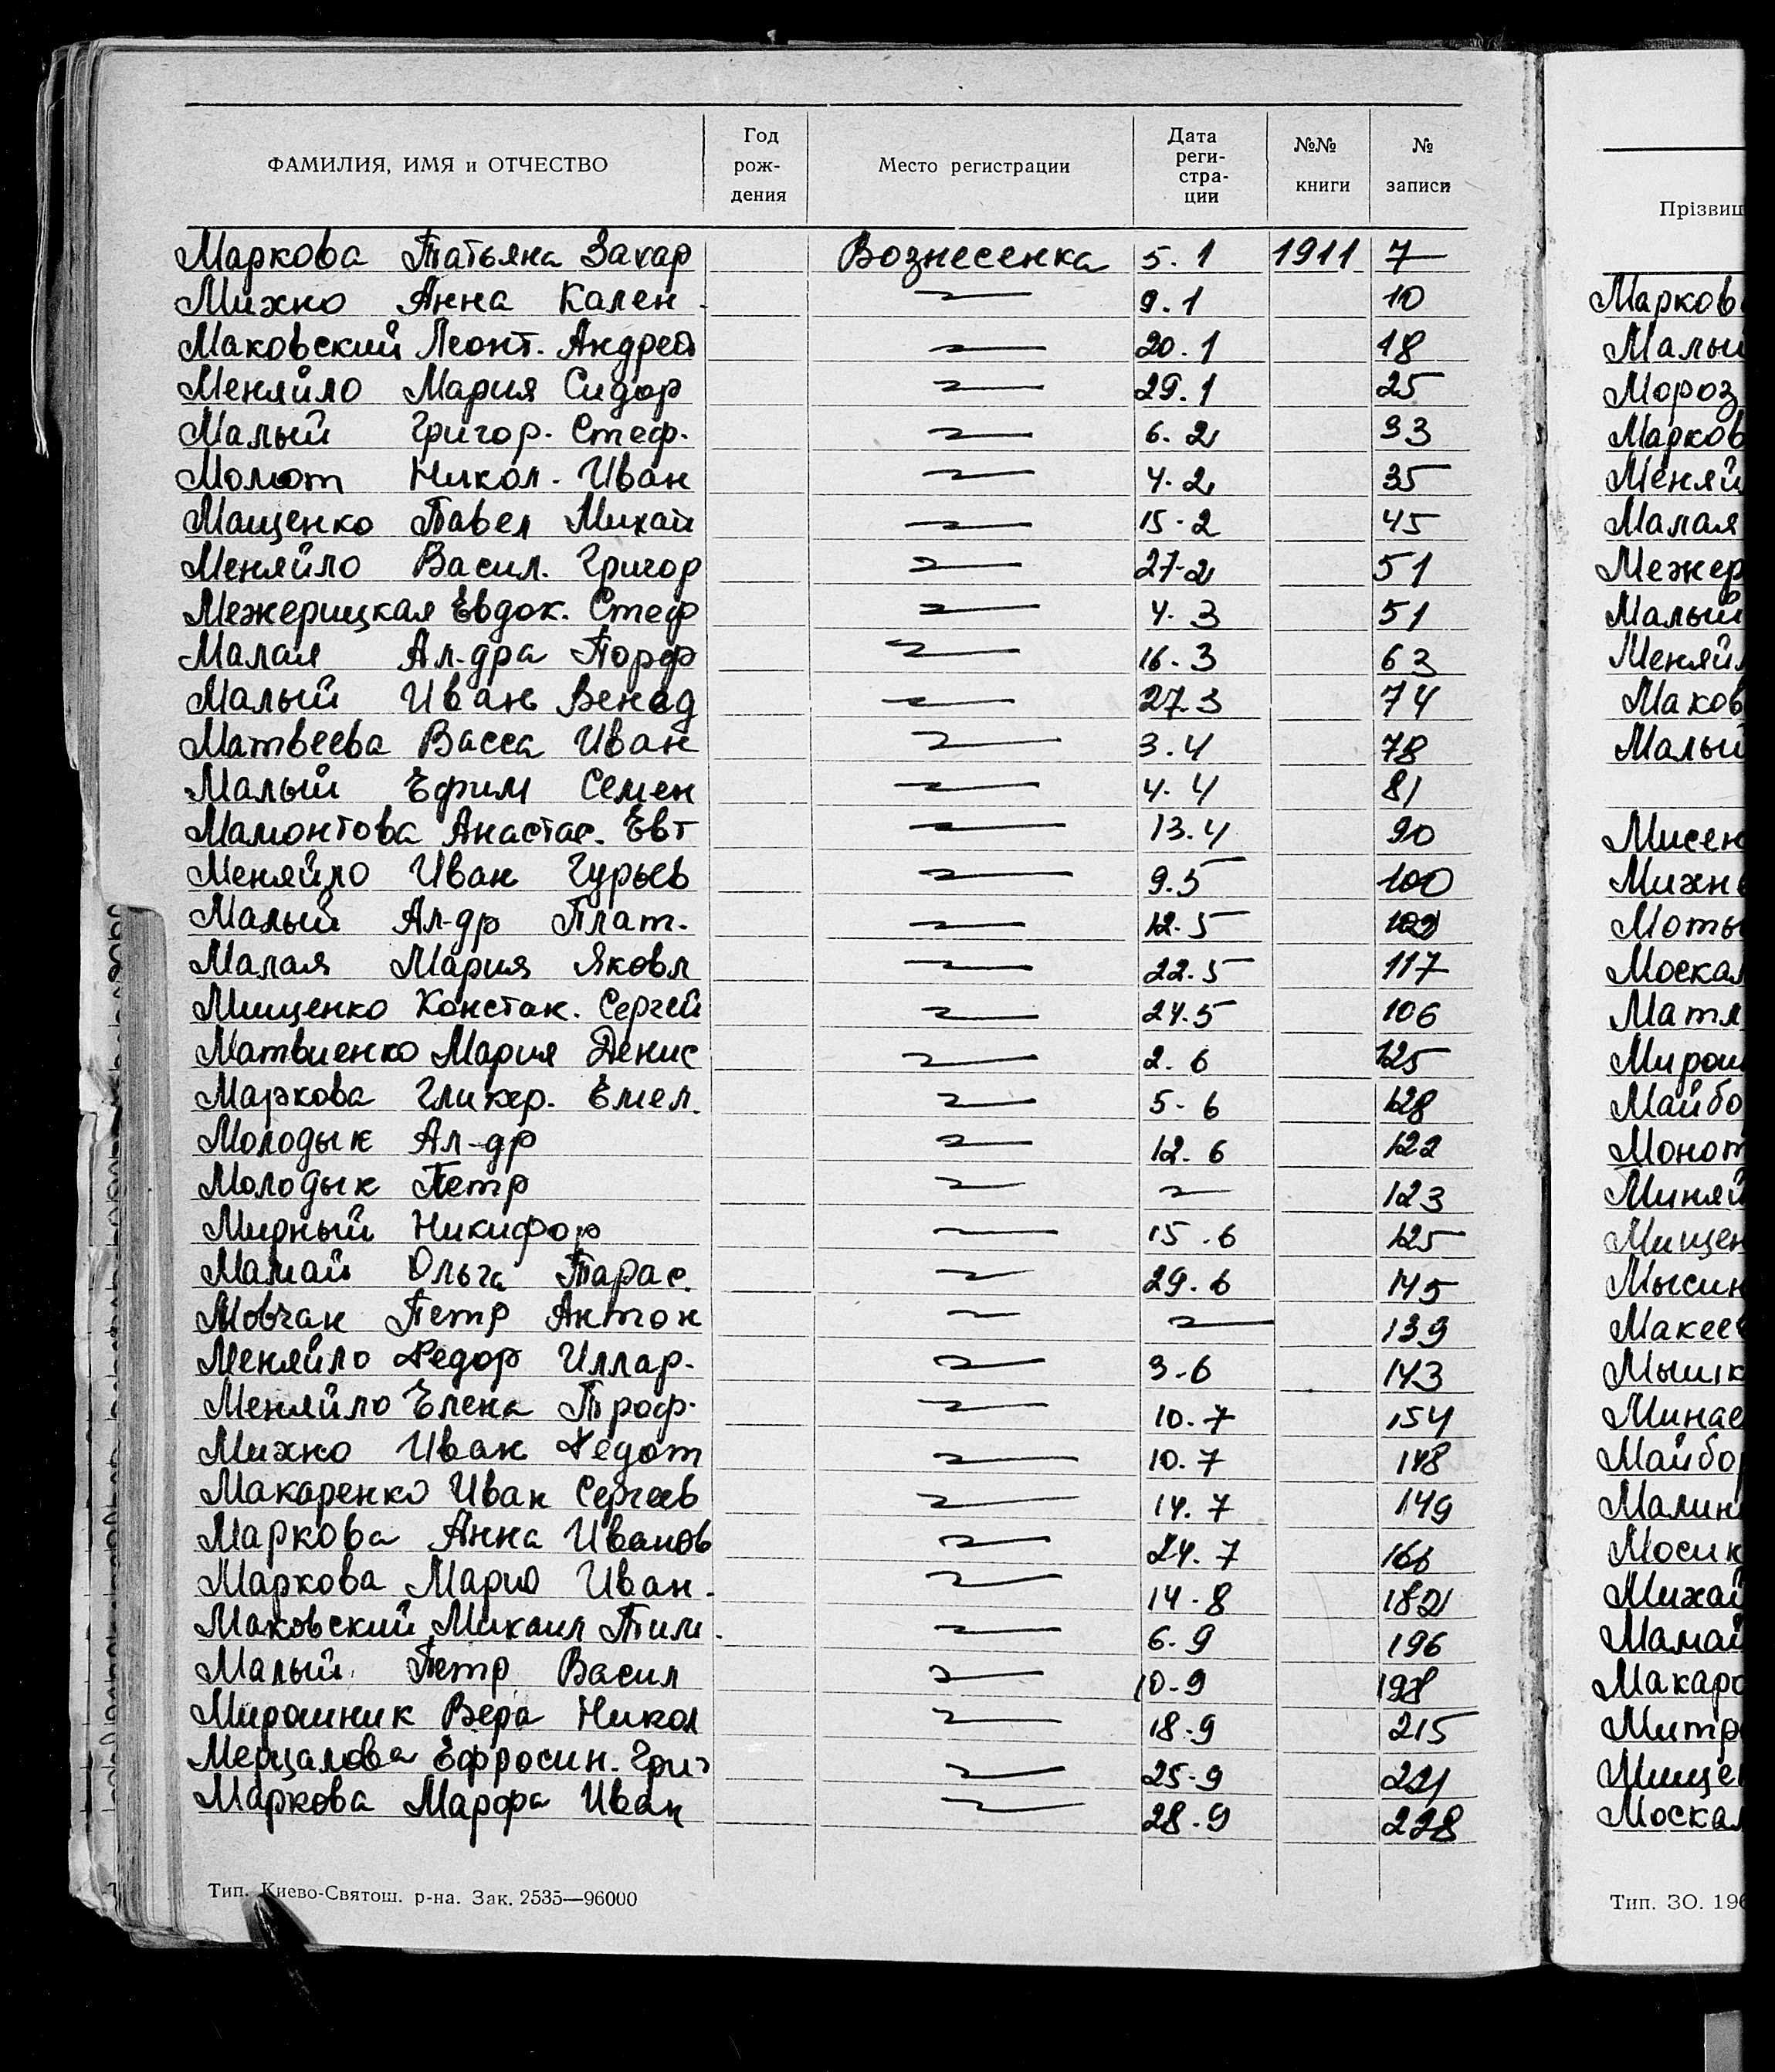 ФАМИЛИЯ, ИМЯ и ОТЧЕСТВО Год рож- дения Место регистрации Дата реги- стра- ции №№ книги № записи
Маркова Татьяна Захар Вознесенка 5.1 1911 7
Михно Анна Кален. 9.1 10
Маковский Леонт. Андрей 20.1 18
Меняйло Мария Сидор 29.1 25
Малый Григор. Стеф. 6.2 33
Молот Никол. Иван 4.2 35
Мащенко Павел Михай 15.2 45
Меняйло Васил. Григор 27.2 51
Межерицкая Евдок. Стеф 4.3 51
Малая Ал-дра Порф 16.3 63
Малый Иван Венед 27.3 74
Матвеева Васса Иван 3.4 78
Малый Ефим Семен 4.4 81
Мамонтова Анастас. Евт 13.4 90
Меняйло Иван Гурьев 9.5 100
Малый Ал-др Плат. 12.5
Малая Мария Яковл 22.5 117
Мищенко Констан. Сергей 24.5 106
Матвиенко Мария Денис 2.6 125
Маркова Гликер. Емел. 5.6 128
Молодык Ал-др 12.6 122
Молодык Петр 123
Мирный Никифор 15.6 125
Мамай Ольга Тарас. 29.6 145
Мовчан Петр Антон 139
Меняйло Федор Иллар. 3.6 143
Меняйло Елена Троф. 10.7 154
Михно Иван Федот 10.7 148
Макаренко Иван Сергеев 14.7 149
Маркова Анна Иванов 24.7 166
Маркова Мария Иван. 14.8 182
Маковский Михаил Тим. 6.9 196
Малый Петр Васил 10.9 198
Мирошник Вера Никол 18.9 215
Мерцалова Ефросин. Григ 25.9 221
Маркова Марфа Иван 28.9 228
Тип. Киево-Святош. р-на. Зак. 2535—96000
Прізвищ
Марков
Малый
Мороз
Марков
Меняй
Малая
Межер
Малый
Меняйл
Маков
Малый
Мисен
Михн
Моты
Москал
Матл
Мирош
Майбо
Моноп
Миняй
Мищен
Мысин
Макее
Мышк
Минае
Майбор
Малин
Мосик
Михай
Мамай
Макаро
Митр
Мище
Москал
Тип. ЗО. 196